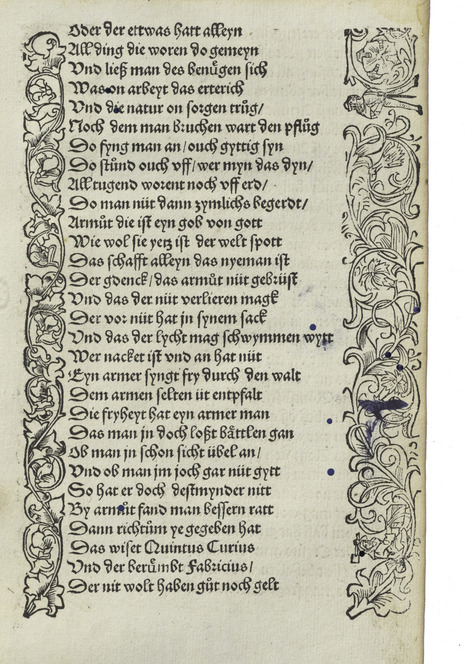 Oder der ettwas hatt alleyn
All ding die woren do gemeyn
Vnd ließ man des benuͤgen sich
Was on arbeyt das erterich
Vnd die natur on sorgen truͤg/
Noch dem man bruchen wart den pfluͤg
Do fyng man an/ ouch gyttig syn
Do stuͤnd ouch vff/ wer myn das dyn/
All tugend worent noch vff erd/
Do man nüt dann zymlichs begerdt/
Armuͤt die ist eyn gob von gott
Wie wol sie yetz ist der welt spott
Das schafft alleyn das nyeman ist
Der gdenck/ das armuͤt nüt gebrüst
Vnd das der nüt verlieren magk
Der vor nüt hat jn synem sack
Vnd das der lycht mag schwymmen wytt
Wer nacket ist vnd an hat nüt
Eyn armer syngt fry durch den walt
Dem armen selten üt entpfalt
Die fryheyt hat eyn armer man
Das man jn doch loßt bättlen gan
Ob man jn schon sicht übel an/
Vnd ob man jm joch gar nüt gytt
So hat er doch dest mynder nitt
By armuͤt fand man bessern ratt
Dann richtuͤm ye gegeben hat
Das wiset Quintus Curius
Vnd der beruͤmbt Fabricius/
Der nit wolt haben guͤt noch gelt